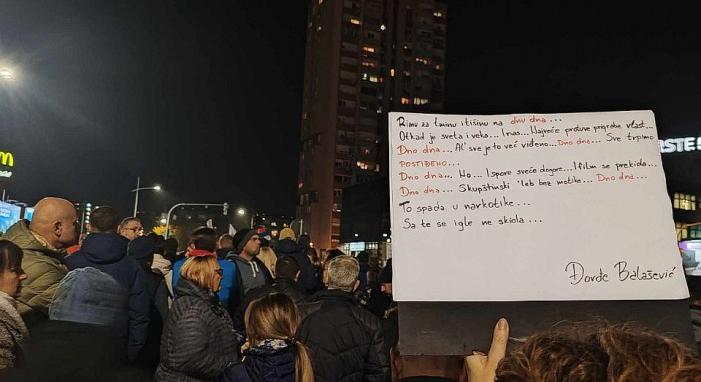 Rimu za tminu i tišinu na dnu dna...
Otkad je sveta i veka... I nas... Najveće protuve prigrabe vlast...
Dno dna... Al' sve je to već viđeno... Dno dna... Sve trpimo
POSTIĐENO...
Dno dna... No... I spore sveće dogore... I film se prekida...
Dno dna... Skupštinski 'leb bez motike... Dno dna...
To spada u narkotike...
Sa te se igle ne skida...
Đorđe Balašević
RSTE